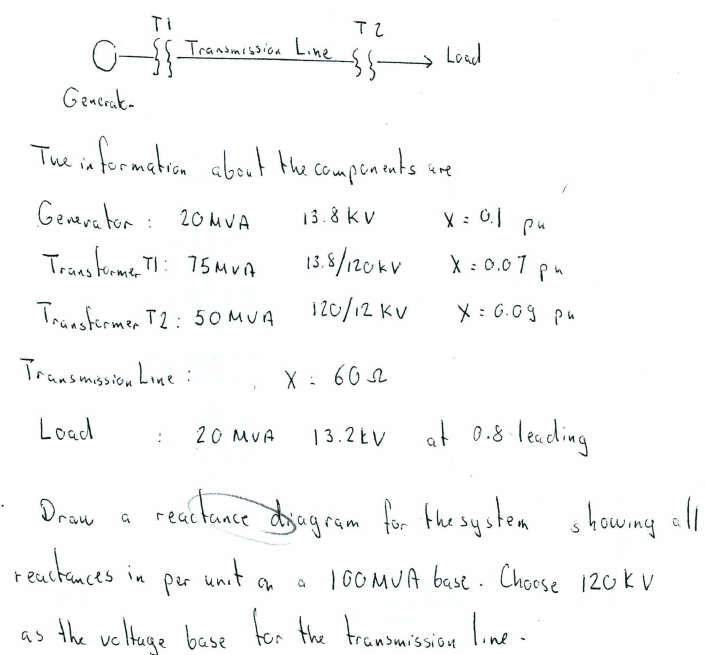 T1 T2
Transmission Line Load
Generat-
The information about the components are
Generator : 20 MVA 13.8 KV X = 0.1 pu
Transformer T1 : 75 MVA 13.8/120 KV X = 0.07 pu
Transformer T2 : 50 MVA 120/12 KV X = 0.09 pu
Transmission Line : X = 60 Ω
Load : 20 MVA 13.2 KV at 0.8 leading
Draw a reactance diagram for the system showing all
reactances in per unit on a 100 MVA base. Choose 120 KV
as the voltage base for the transmission line.